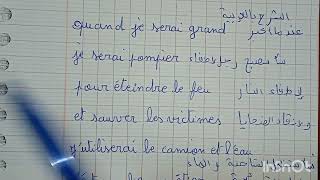 الشرح بالعربية
quand je serai grand عندما أكبر
je serai pompier سأصبح رجل إطفاء
pour éteindre le feu لإطفاء النار
et sauver les victimes وإنقاذ الضحايا
j'utiliserai le camion et l'eau الشاحنة والماء